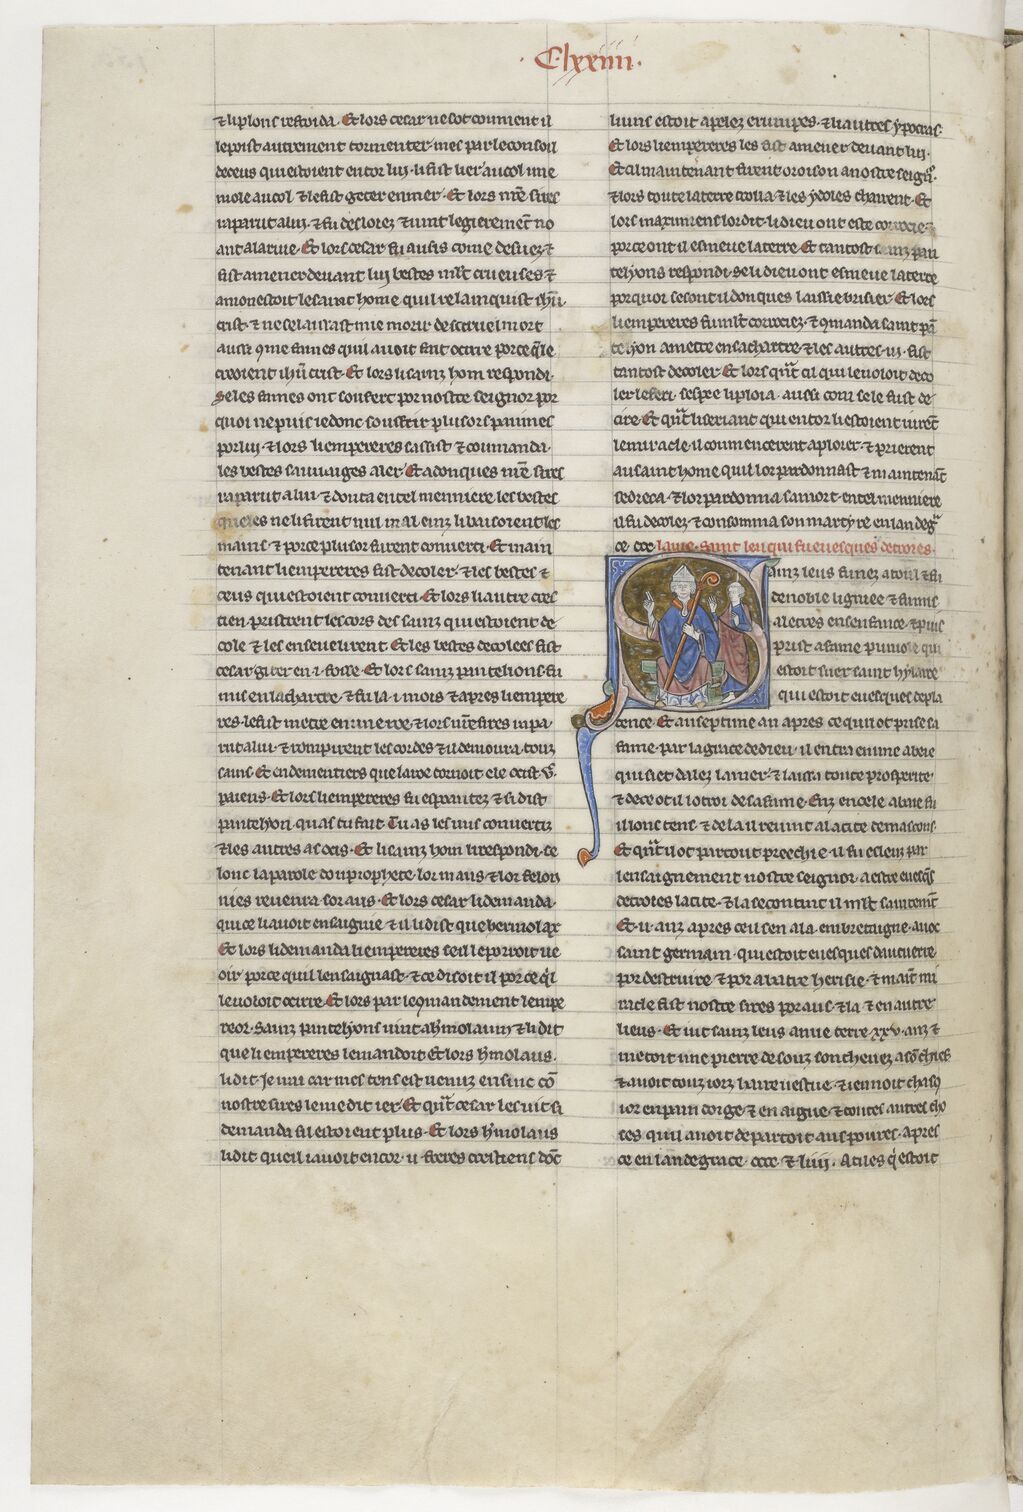 .Clxxiiii.
⁊ li plons refroida. Et lors cesar ne sot comment il
le poist autrement tormenter. mes par le conseil
de ceus qui estoient entor lui. li fist lier au col une
mole au col ⁊ le fist geter en mer. Et lors nr̄e sires
raparut a lui. ⁊ fu desloiez ⁊ vint legierem̄t no
ant a la rive. Et lors cesar fu ausis come desvez ⁊
fist amener devant lui bestes ml̄t crueuses ⁊
amonestoit le saint home quil relainquist ih̄u
crist. ⁊ ne se laissast mie morir de si cruel mort
ausi ꝯme fames quil avoit fait ocirre por ce q̄ le
creoient ih̄u crist. Et lors li sainz hom respondi.
Se les fames ont soufert por nostre seignor por
quoi ne puis ie donc souffrir plusors paines
por lui. ⁊ lors li empereres sassist ⁊ coumanda
les bestes sauvages aler. Et adonques nr̄e sires
raparut a lui. ⁊ donta en tel menniere les bestes
queles ne li firent nul mal. einz li baisoient les
mains. ⁊ por ce plusor furent converti. Et main
tenant li empereres fist decoler. ⁊ les bestes ⁊
ceus qui estoient converti. Et lors li autre cres
tien pristrent les cors des sainz qui estoient de
cole ⁊ les ensevelirent. Et les bestes decolees fist
cesar giter en .i. fosse. Et lors sainz pantelions fu
mis en la chartre. ⁊ fu la .i. mois ⁊ apres li empere
res le fist metre en une roe. ⁊ lors nr̄e sires li apa
rut a lui. ⁊ rompirent les cordes ⁊ il demoura touz
sains. Et endementiers que la roe tornoit ele ocist .vc.
paiens. Et lors li empereres fu espantez ⁊ si dist
pantelyon. quas tu fait. Tu as les uns convertiz
⁊ les autres as ocis. Et li sainz hom li respondi. se
lonc la parole dou prophete. lor maus ⁊ lor felon
nies revenra sor aus. Et lors cesar li demanda.
qui ce li avoit ensaignie. ⁊ il li dist que hermolax
Et lors li demanda li empereres seil le porroit ve
oir por ce quil lensaignast. ⁊ ce disoit il por ce qil
le voloit ocirre. Et lors par le ꝯmandement lempe
reor. Sainz pantelyons vint a h̄molaum ⁊ li dit
que li empereres le mandoit Et lors h̄molaus.
li dit Je irai car mes tens est venuz ensinc cō
nostre sires le me dit ier. Et qn̄t cesar les vit si
demanda sil estoient plus. Et lors h̄molaus
li dit queil i avoit encor .ii. freres crestiens dōt
li uns estoit apelez erunipes. ⁊ li autres ypocras.
Et lors li empereres les fist amener devant lui.
Et cil maintenant firent oroison a nostre seignr̄.
⁊ lors toute la terre crolla. ⁊ les ydoles chairent. Et
lors maximiens lor dit. li dieu ont este corrocie.
por ce ont il esmeue la terre Et tantost sainz pan
telyons respondi. se li dieu ont esmeue la terre
por quoi se sont il donques laissie brisier. Et lors
li empereres fu ml̄t corrociez. ⁊ ꝯmanda saint pā
telyon a metre en sa chartre. ⁊ les autres .iij. fist
tantost decoler. Et lors qn̄t cil qui le voloit deco
ler le feri. sespee li ploia. aussi com sele fust de
cire. Et qn̄t li seriant qui entor li estoient virēt
le miracle. il coumencerent a plorer. ⁊ prierent
au saint home quil lor pardonnast ⁊ maintenāt
se dreca. ⁊ lor pardonna sa mort. en tel menniere
il fu decolez. ⁊ consomma son martyre en lan de gr̄a
ce .ccc. La vie. saint leu qui fu evesques de troies.
Sainz leus fu nez a toul ⁊ fu
de noble lignee ⁊ fu mis
a letres en senfance. ⁊ puis
prist a fame pimole qui
estoit suer saint hylaire
qui estoit evesques de pla
tence. Et au septime an apres ce qui ot prise sa
fame. par la grace de dieu. il entra en une abeie
qui siet dalez la mer. ⁊ laissa toute prosperite
⁊ de ce ot il lotroi de sa fame. Enz en cele abaie fu
il lonc tens. ⁊ de la il revint a la cite de mascons
Et qn̄t il ot par tout preechie. il fu esleuz par
lensaignement nostre seignor. a estre evesqs̄
de troies la cite. ⁊ la se contint il ml̄t saintemēt
Et .ii. anz apres ceil sen ala en bretaigne. avec
saint germain. qui estoit evesques daucuerre
por destruire ⁊ por abatre heresie. ⁊ maīt mi
racle fist nostre sires por aus. ⁊ la ⁊ en autre
lieus. Et iut sainz leus a nue terre .xxv. anz ⁊
metoit une pierre desouz son chevez a sō chief
⁊ avoit touz iorz haire vestue. ⁊ ienoit chasq̄
ior en pain dorge. ⁊ en aigue. ⁊ toutes autres cho
ses quil avoit departoit aus poures. apres
ce en lan de grace .cccc. ⁊ liiii. Atiles q̄ estoit